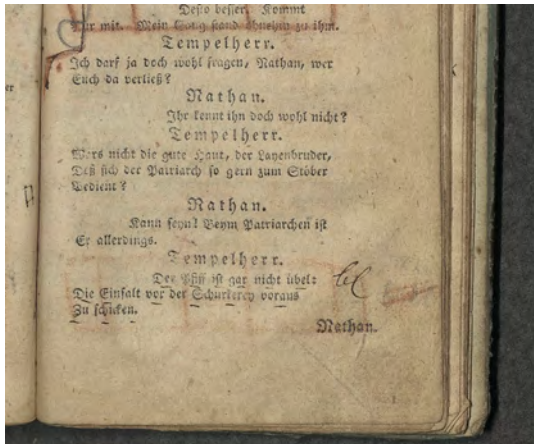 Desto besser. Kommt
Nur mit. Mein Weg stand ohnehm zu ihm.
Tempelherr.
Ich darf ja doch wohl fragen, Nathan, wer
Euch da verließ?
Nathan.
Ihr kennt ihn doch wohl nicht?
Tempelherr.
Wars nicht die gute Haut, der Layenbruder,
Deß sich der Patriarch so gern zum Stöber
Bedient?
Nathan.
Kann seyn! Beym Patriarchen ist
Er allerdings.
Tempelherr.
Der Pfiff ist gar nicht übel:
Die Einfalt vor der Schurkerey voraus
Zu schicken.
Nathan.